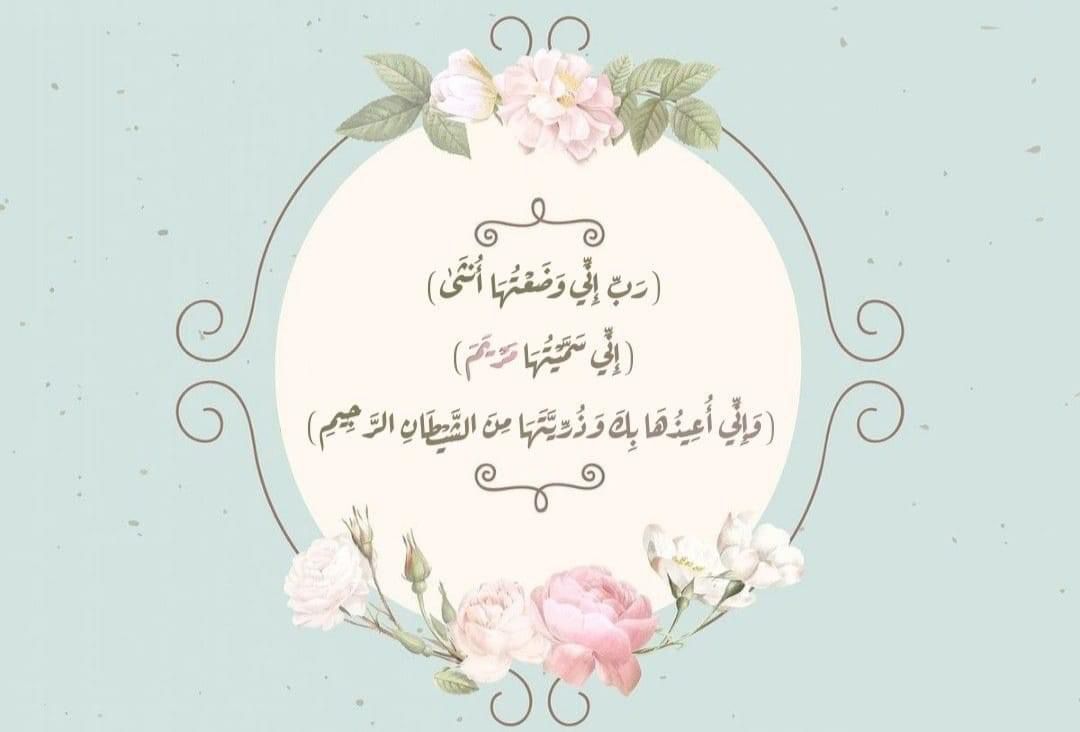 (رَبِّ إِنِّي وَضَعْتُهَا أُنْثَىٰ)
(إِنِّي سَمَّيْتُهَا مَرْيَمَ)
(وَإِنِّي أُعِيذُهَا بِكَ وَذُرِّيَّتَهَا مِنَ الشَّيْطَانِ الرَّجِيمِ)